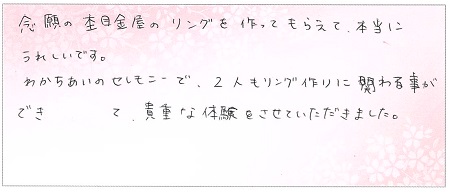 念願の杢目金屋のリングを作ってもらえて、本当に
うれしいです。
わかちあいのセレモニーで、2人もリング作りに関わる事が
でき て、貴重な体験をさせていただきました。